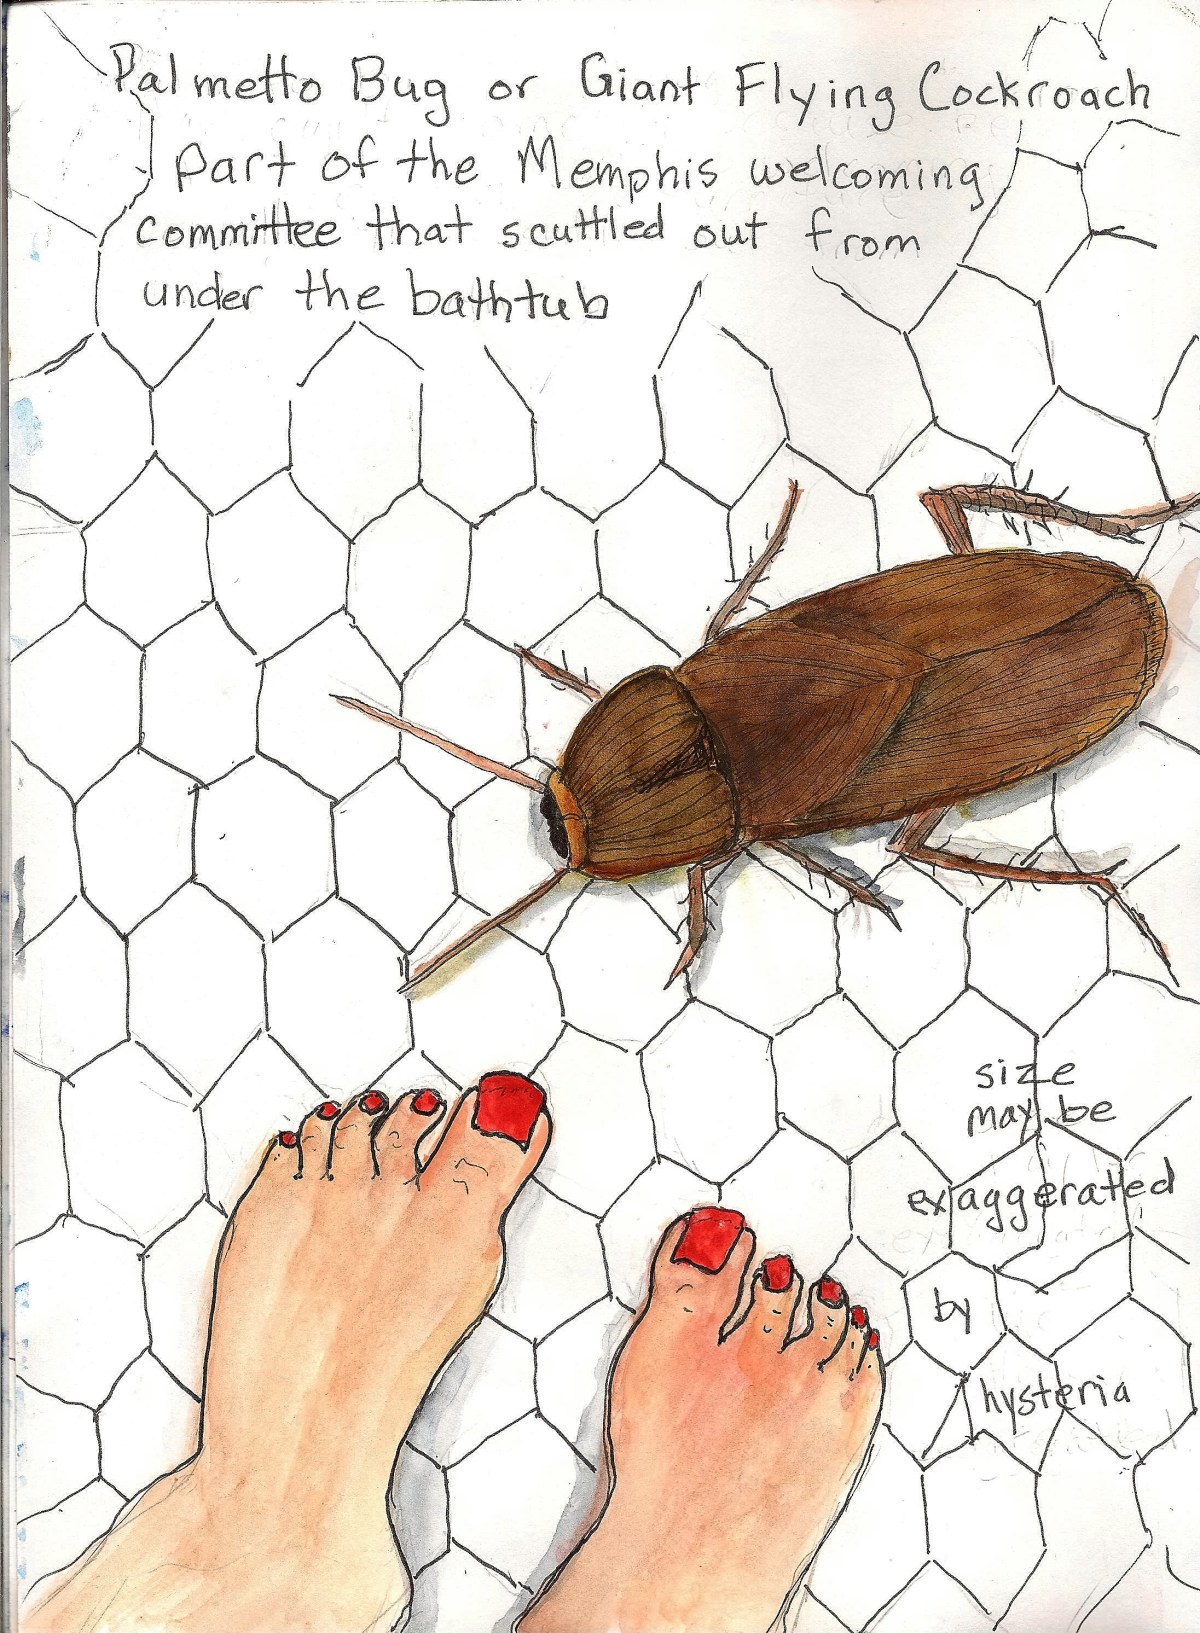 Palmetto Bug or Giant Flying Cockroach
part of the Memphis welcoming
committee that scuttled out from
under the bathtub
size
may be
exaggerated
by
hysteria